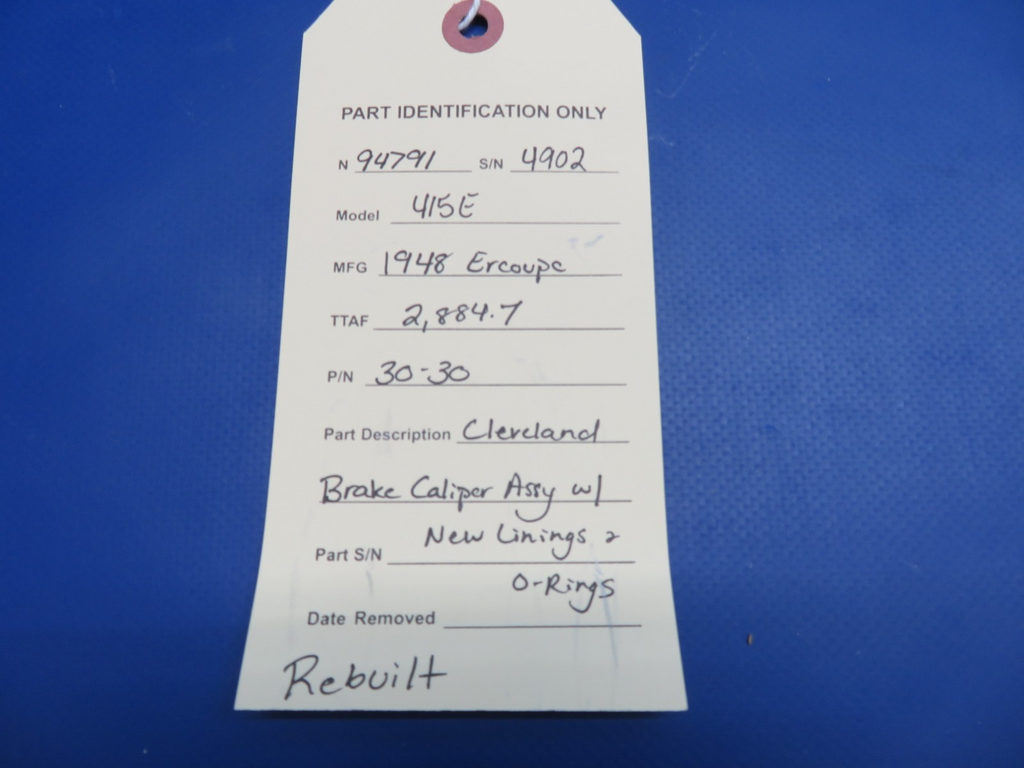 PART IDENTIFICATION ONLY
N 94791 S/N 4902
Model 415E
MFG 1948 Ercoupe
TTAF 2,884.7
P/N 30-30
Part Description Cleveland
Brake Caliper Assy w/
New Linings &
Part S/N
O-Rings
Date Removed
Rebuilt